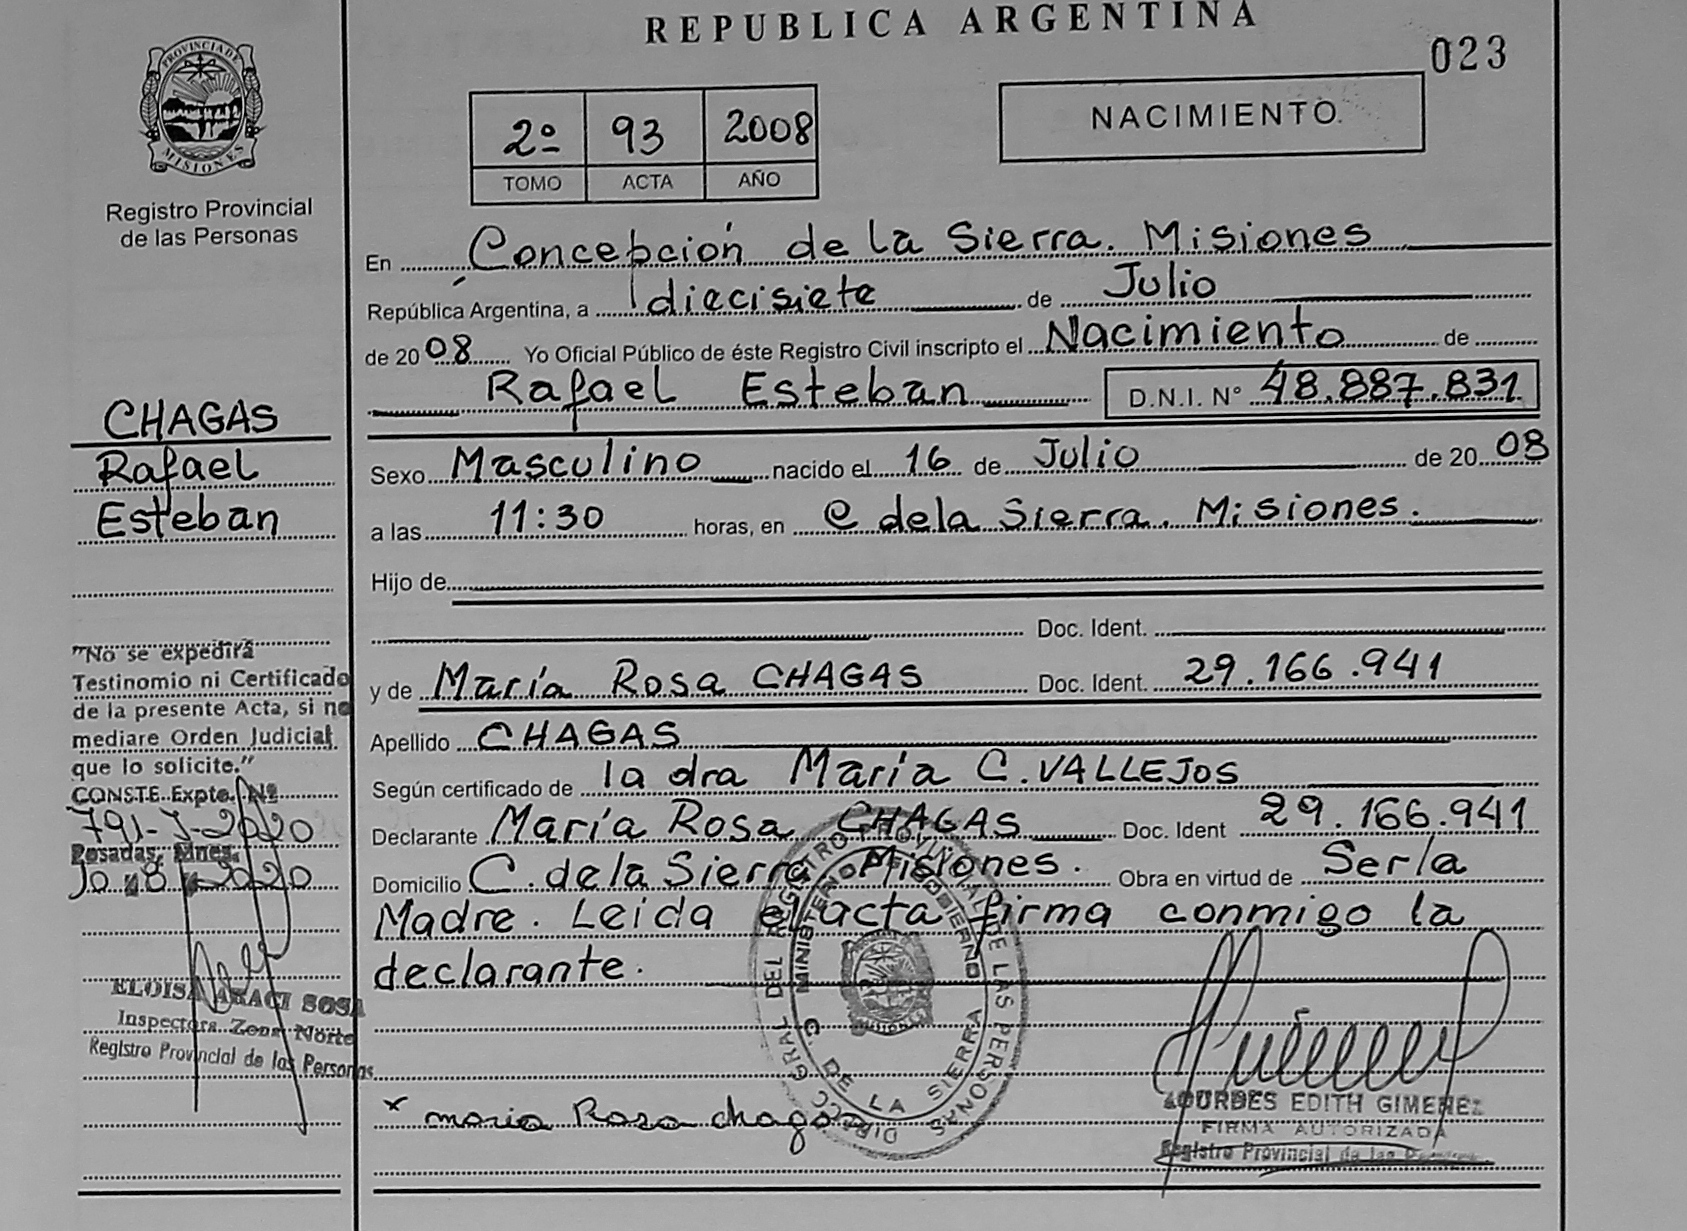 REPUBLICA ARGENTINA
023
PROVINCIA DE MISIONES
Registro Provincial
de las Personas
2º 93 2008
TOMO ACTA AÑO
NACIMIENTO.
En Concepción de la Sierra. Misiones
República Argentina, a diecisiete de Julio
de 2008 Yo Oficial Público de éste Registro Civil inscripto el Nacimiento de
Rafael Esteban D.N.I. Nº 48.887.831
Sexo Masculino nacido el 16 de Julio de 2008
a las 11:30 horas, en C dela Sierra. Misiones.
Hijo de
Doc. Ident.
y de María Rosa CHAGAS Doc. Ident. 29.166.941
Apellido CHAGAS
Según certificado de la dra María C. VALLEJOS
Declarante María Rosa CHAGAS Doc. Ident 29.166.941
Domicilio C. de la Sierra Misiones. Obra en virtud de Ser la
Madre. Leida el acta firma conmigo la
declarante.
x maria Rosa chagas
LOURDES EDITH GIMENEZ
FIRMA AUTORIZADA
Registro Provincial de las Personas
DIRECC GRAL DEL REGISTRO PROVINCIAL DE LAS PERSONAS
MINISTERIO DE GOBIERNO
MISIONES
C. DE LA SIERRA
CHAGAS
Rafael
Esteban
"No se expedirá
Testinomio ni Certificado
de la presente Acta, si no
mediare Orden Judicial
que lo solicite."
CONSTE Expte. Nº
791-J-2020
Posadas, Mnes.
10 8 2020
ELOISA ARACI SOSA
Inspectora Zona Norte
Registro Provincial de las Personas